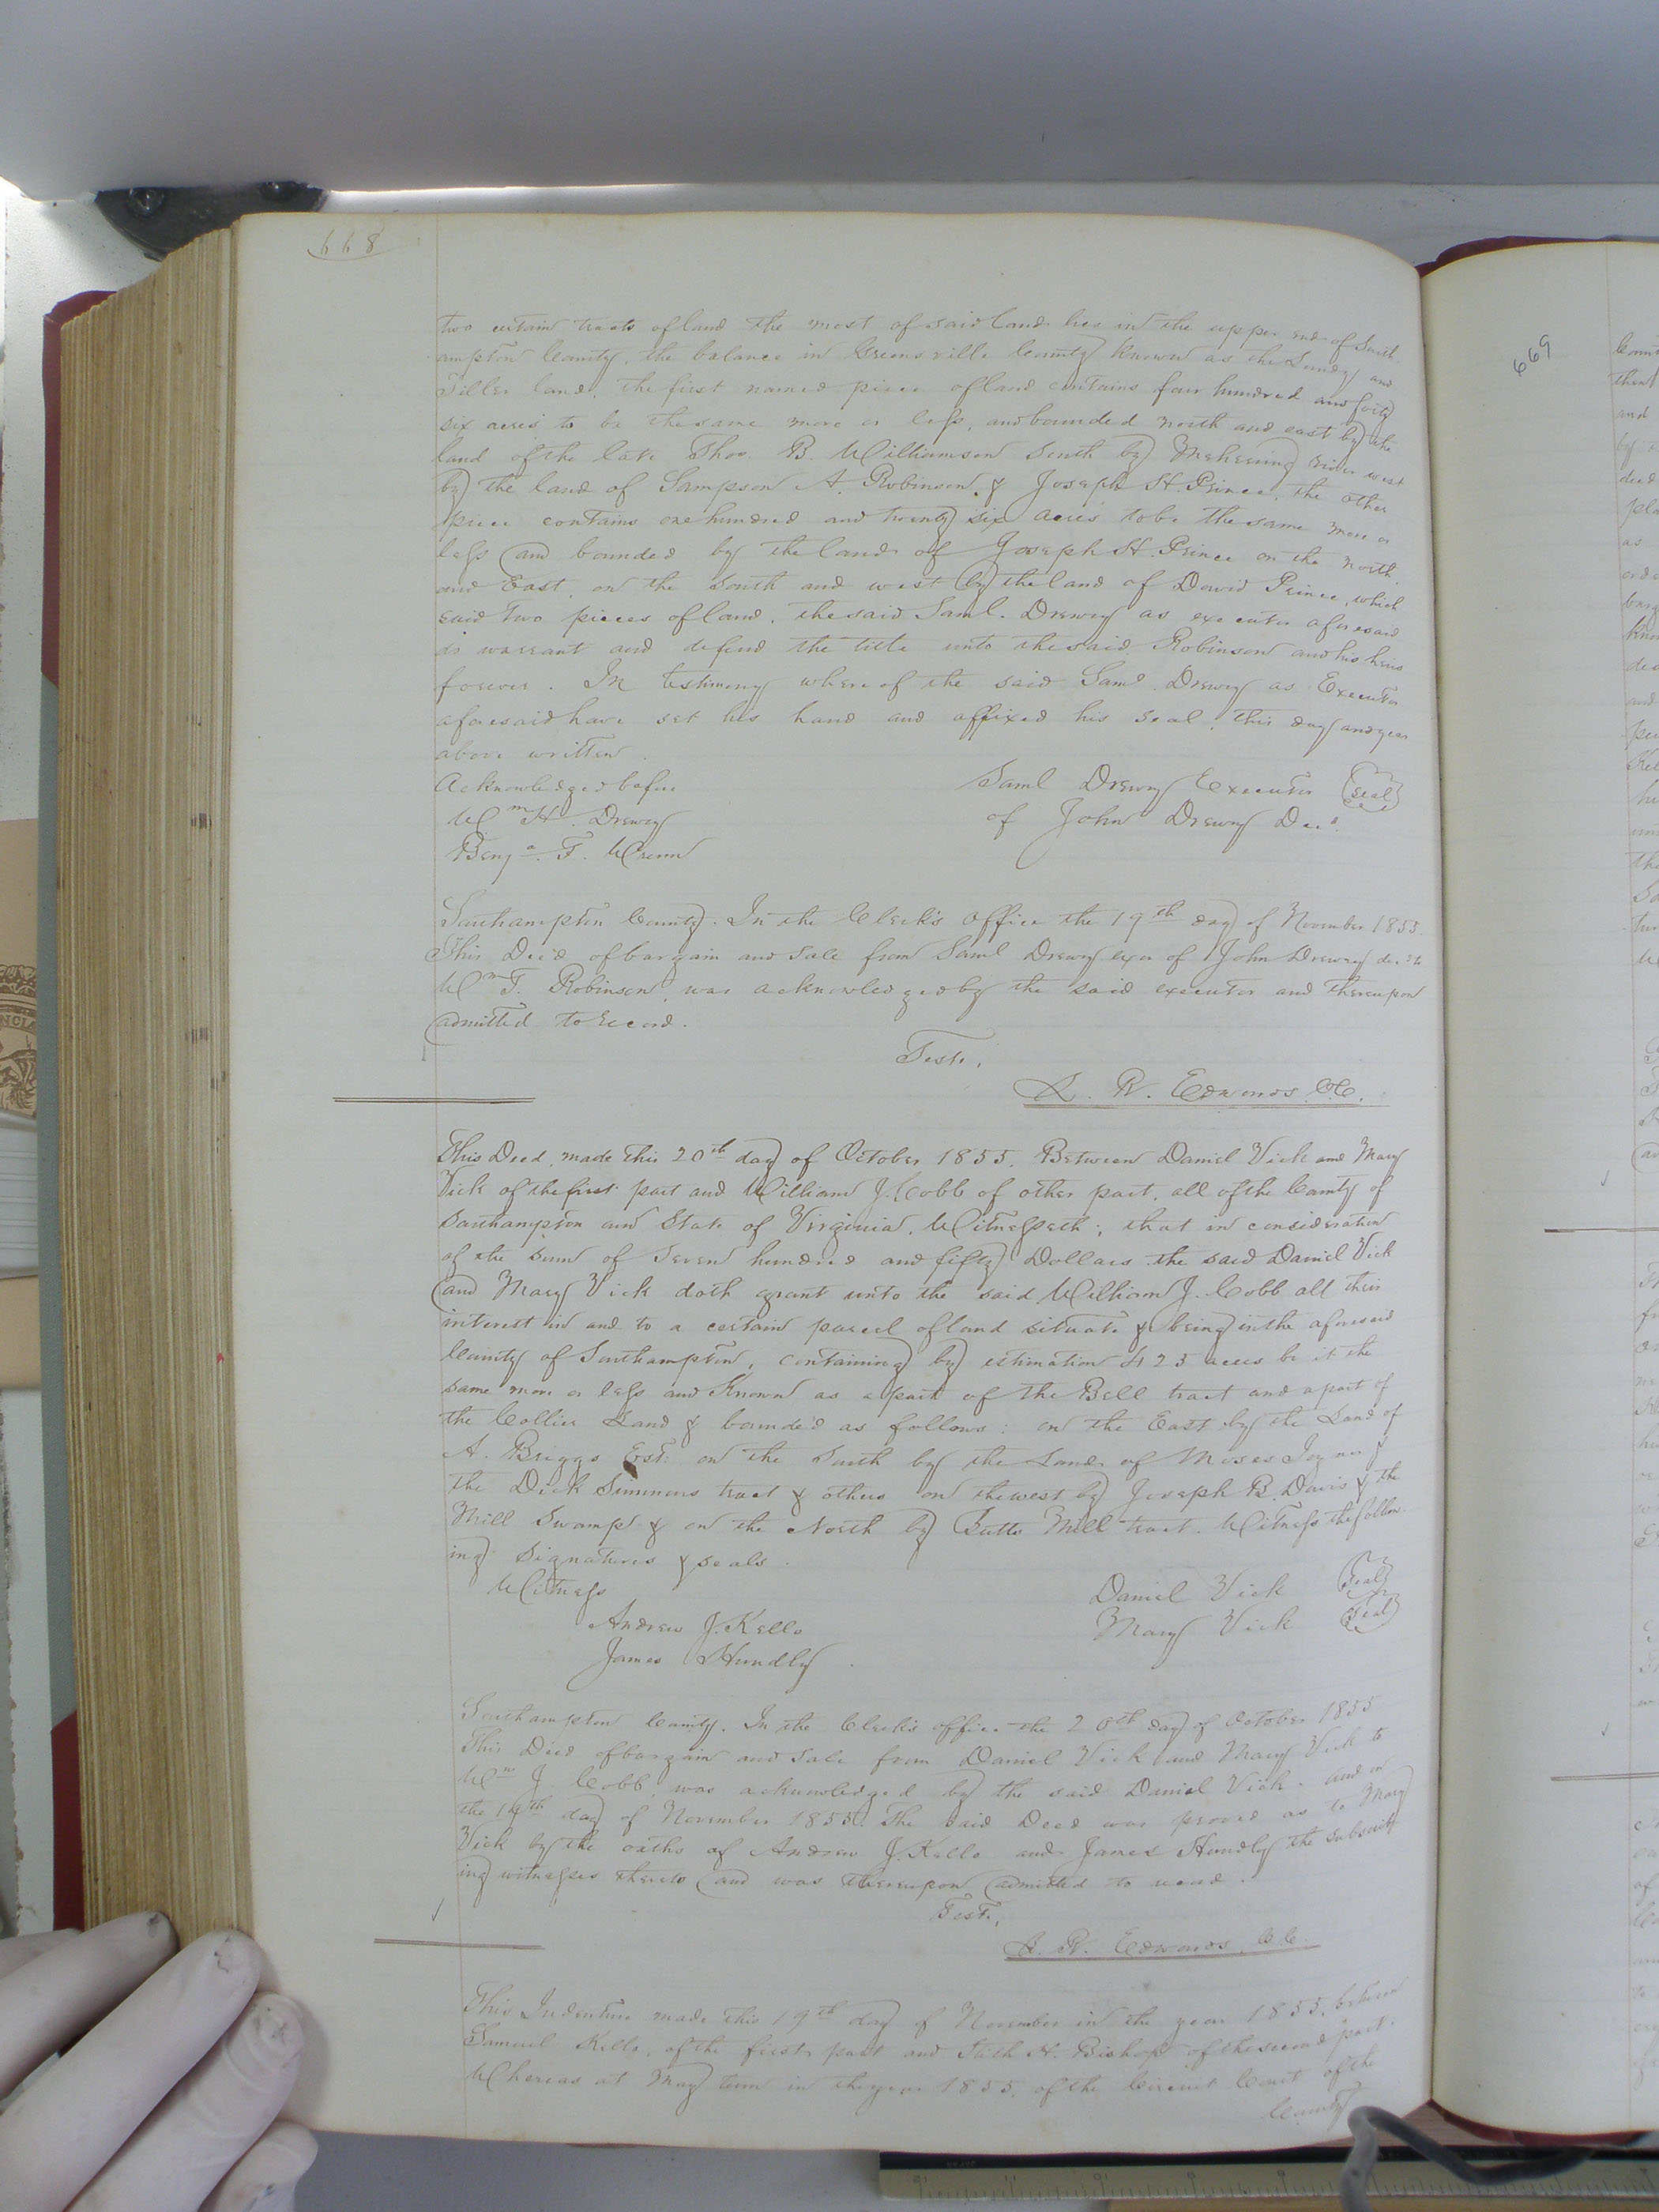 668
two certain tracts of land the most of said land lies in the upper end of South
ampton County, the balance in Greensville County Known as the Lundy and
Tiller land, the first named piece of land contains four hundred and forty
six acres to be the same more or less, and bounded north and east by the
land of the late Thos. B. Williamson South by Meherring river west
by the land of Sampson A. Robinson, & Joseph H. Prince, the other
piece contains one hundred and twenty six acres to be the same more or
less and bounded by the land of Joseph H. Prince on the north
and East, on the South and west by the land of David Prince, which
said two pieces of land, the said Saml. Drewry as executor aforesaid
do warrant and defend the title unto the said Robinson and his heirs
forever. In testimony where of the said Saml. Drewry as Executor
aforesaid have set his hand and affixed his seal, this day and year
above written.
Acknowledged before
Saml Drewry Executor (Seal)
Wm H. Drewry
of John Drewry Decd.
Benja. F. Wrenn
Southampton County. In the Clerk's office the 19th day of November 1855.
This Deed of bargain and Sale from Saml Drewry exor of John Drewry dec. to
Wm T. Robinson, was acknowledged by the said executor and thereupon
admitted to record.
Teste,
L. R. Edwards C.C.
This Deed, made this 20th day of October 1855. Between Daniel Vick and Mary
Vick of the first part and William J. Cobb of other part, all of the County of
Southampton and State of Virginia, Witnesseth; that in consideration
of the Sum of Seven hundred and fifty Dollars the said Daniel Vick
and Mary Vick doth grant unto the said William J. Cobb all their
interest in and to a certain parcel of land situate & being in the aforesaid
County of Southampton, containing by estimation 423 acres be it the
same more or less and Known as a part of the Bell tract and a part of
the Collier Land & bounded as follows: on the East by the Land of
A. Briggs Est. on the South by the Land of Moses Joyner &
the Dick Simmons tract & others on the west by Joseph B. Davis & the
Mill Swamp & on the North by Butts Mill tract. Witness the follow-
ing signatures & seals.
Witness
Daniel Vick (Seal)
Andrew J. Kello
Mary Vick (Seal)
James Hundly.
Southampton County. In the Clerk's office the 20th day of October 1855
This Deed of bargain and Sale from Daniel Vick and Mary Vick to
Wm J. Cobb, was acknowledged by the said Daniel Vick. and on
the 19th day of November 1855. The said Deed was proved as to Mary
Vick by the oaths of Andrew J. Kello and James Hundly the subscrib
ing witnesses thereto and was thereupon admitted to record.
Teste,
L. R. Edwards, C.C.
This Indenture made this 19th day of November in the year 1855, between
Samuel Kello, of the first part and Stith H. Bishop of the second part.
Whereas at May term in the year 1855, of the Circuit Court of the
County
669